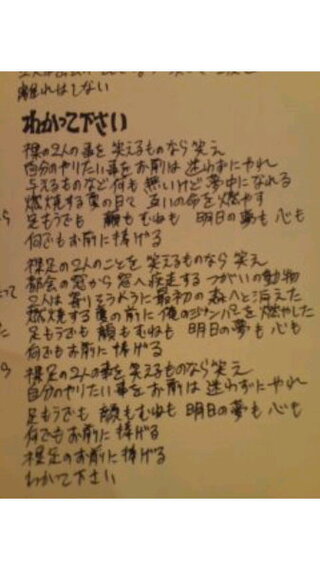 離れはしない
わかって下さい
裸の2人の事を 笑えるものなら笑え
自分のやりたい事をお前は 迷わずにやれ
与えるものなど何も無いけど夢中になれる
燃焼する夏の日々 互いの命を燃やす
足もうでも 顔もむねも 明日の夢も 心も
何でもお前に捧げる
裸足の2人のことを 笑えるものなら笑え
都会の窓から窓へ疾走する つがいの動物
2人は寄りそうように最初の森へと消えた
燃焼する夏の前に 俺のジャンパーを燃やした
足もうでも 顔もむねも 明日の夢も 心も
何でもお前に 捧げる
裸足の2人の事を 笑えるものなら笑え
自分のやりたい事をお前は 迷わずにやれ
足もうでも 顔もむねも 明日の夢も 心も
何でもお前に 捧げる
裸足のお前に捧げる
わかって下さい